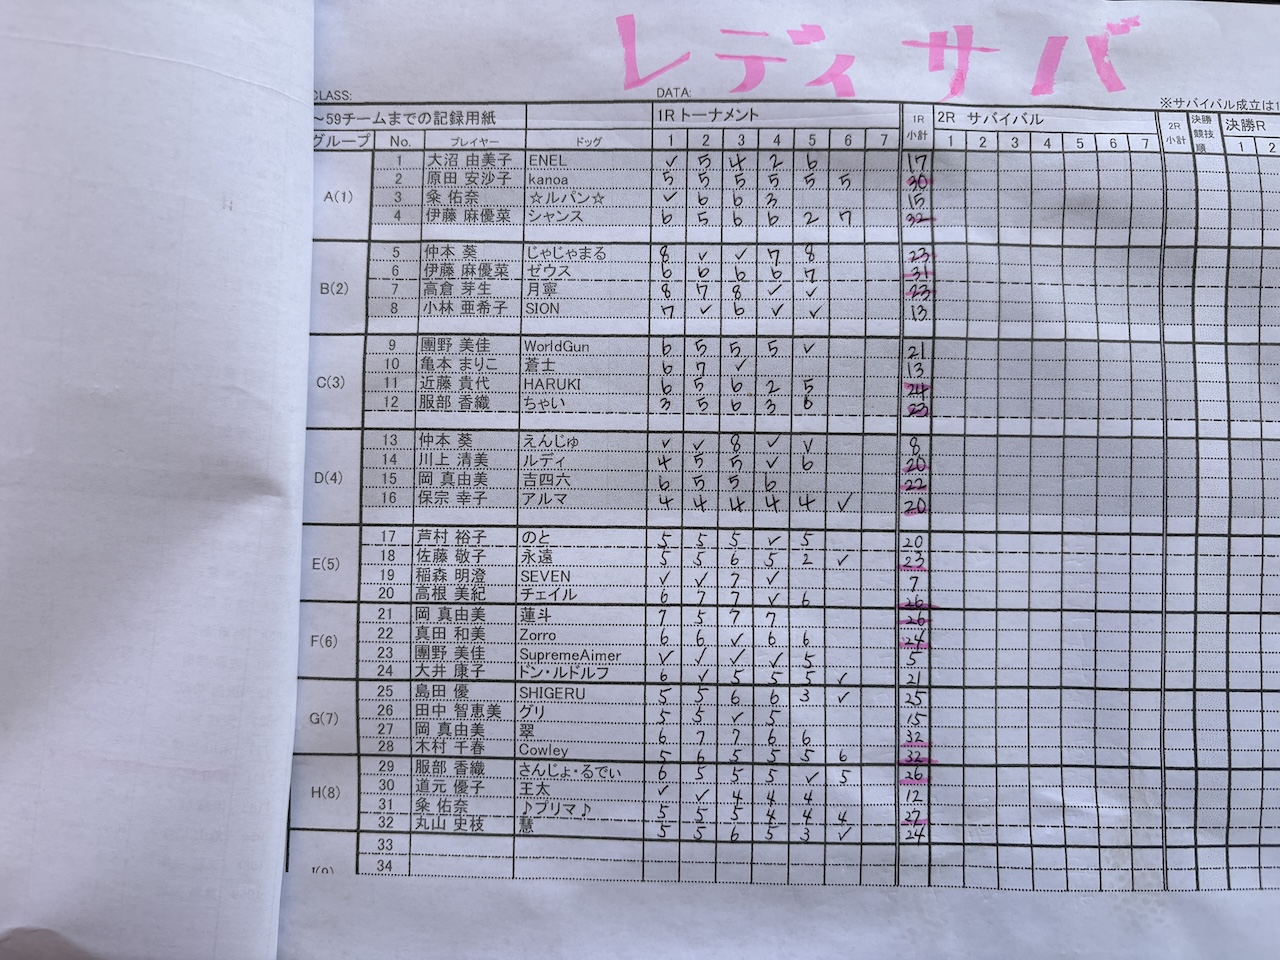 レディサバ
CLASS: DATA:
※サバイバル成立は1
~59チームまでの記録用紙 1R トーナメント 1R 小計 2R サバイバル 2R 小計 決勝競技順 決勝R
グループ No. プレイヤー ドッグ 1 2 3 4 5 6 7 1 2 3 4 5 6 7 1 2
A(1)
1 大沼 由美子 ENEL ✓ 5 4 2 6 17
2 原田 安沙子 kanoa 5 5 5 5 5 5 30
3 粂 佑奈 ☆ルパン☆ ✓ 6 6 3 15
4 伊藤 麻優菜 シャンス 6 5 6 6 2 7 32
B(2)
5 仲本 葵 じゃじゃまる 8 ✓ ✓ 7 8 23
6 伊藤 麻優菜 ゼウス 6 6 6 6 7 31
7 高倉 芽生 月寧 8 7 8 ✓ ✓ 23
8 小林 亜希子 SION 7 ✓ 6 ✓ ✓ 13
C(3)
9 團野 美佳 WorldGun 6 5 5 5 ✓ 21
10 亀本 まりこ 蒼士 6 7 ✓ 13
11 近藤 貴代 HARUKI 6 5 6 2 5 24
12 服部 香織 ちゃい 3 5 6 3 6 23
D(4)
13 仲本 葵 えんじゅ ✓ ✓ 8 ✓ ✓ 8
14 川上 清美 ルディ 4 5 5 ✓ 6 20
15 岡 真由美 吉四六 6 5 5 6 22
16 保宗 幸子 アルマ 4 4 4 4 4 ✓ 20
E(5)
17 芦村 裕子 のと 5 5 5 ✓ 5 20
18 佐藤 敬子 永遠 5 5 6 5 2 ✓ 23
19 稲森 明澄 SEVEN ✓ ✓ 7 ✓ 7
20 高根 美紀 チェイル 6 7 7 ✓ 6 26
F(6)
21 岡 真由美 蓮斗 7 5 7 7 26
22 真田 和美 Zorro 6 6 ✓ 6 6 24
23 團野 美佳 SupremeAimer ✓ ✓ ✓ ✓ 5 5
24 大井 康子 ドン・ルドルフ 6 ✓ 5 5 5 ✓ 21
G(7)
25 島田 優 SHIGERU 5 5 6 6 3 ✓ 25
26 田中 智恵美 グリ 5 5 ✓ 5 15
27 岡 真由美 翠 6 7 7 6 6 32
28 木村 千春 Cowley 5 6 5 5 5 6 32
H(8)
29 服部 香織 さんじょ・るでぃ 6 5 5 5 ✓ 5 26
30 道元 優子 王太 ✓ ✓ 4 4 4 12
31 粂 佑奈 ♪プリマ♪ 5 5 5 4 4 4 27
32 丸山 史枝 慧 5 5 6 5 3 ✓ 24
33
34